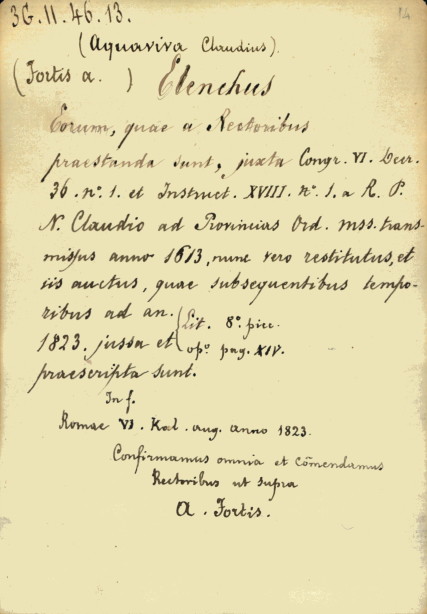 36.11.46.13.
14
(Aquaviva Claudius).
(Fortis a. ) Elenchus
Eorum, quae a Rectoribus
praestanda sunt, juxta Congr. VI. Decr.
36. nº. 1. et Instruct. XVIII. nº. 1. a R. P.
N. Claudio ad Provincias Ord. mss. trans-
missus anno 1613, nunc vero restitutus, et
iis auctus, quae subsequentibus tempo-
ribus ad an.
1823. jussa et
praescripta sunt.
Lit. 8º. picc.
opº. pag. XIV.
In f.
Romae VI. Kal. aug. anno 1823.
Confirmamus omnia et cōmendamus
Rectoribus ut supra
A. Fortis.